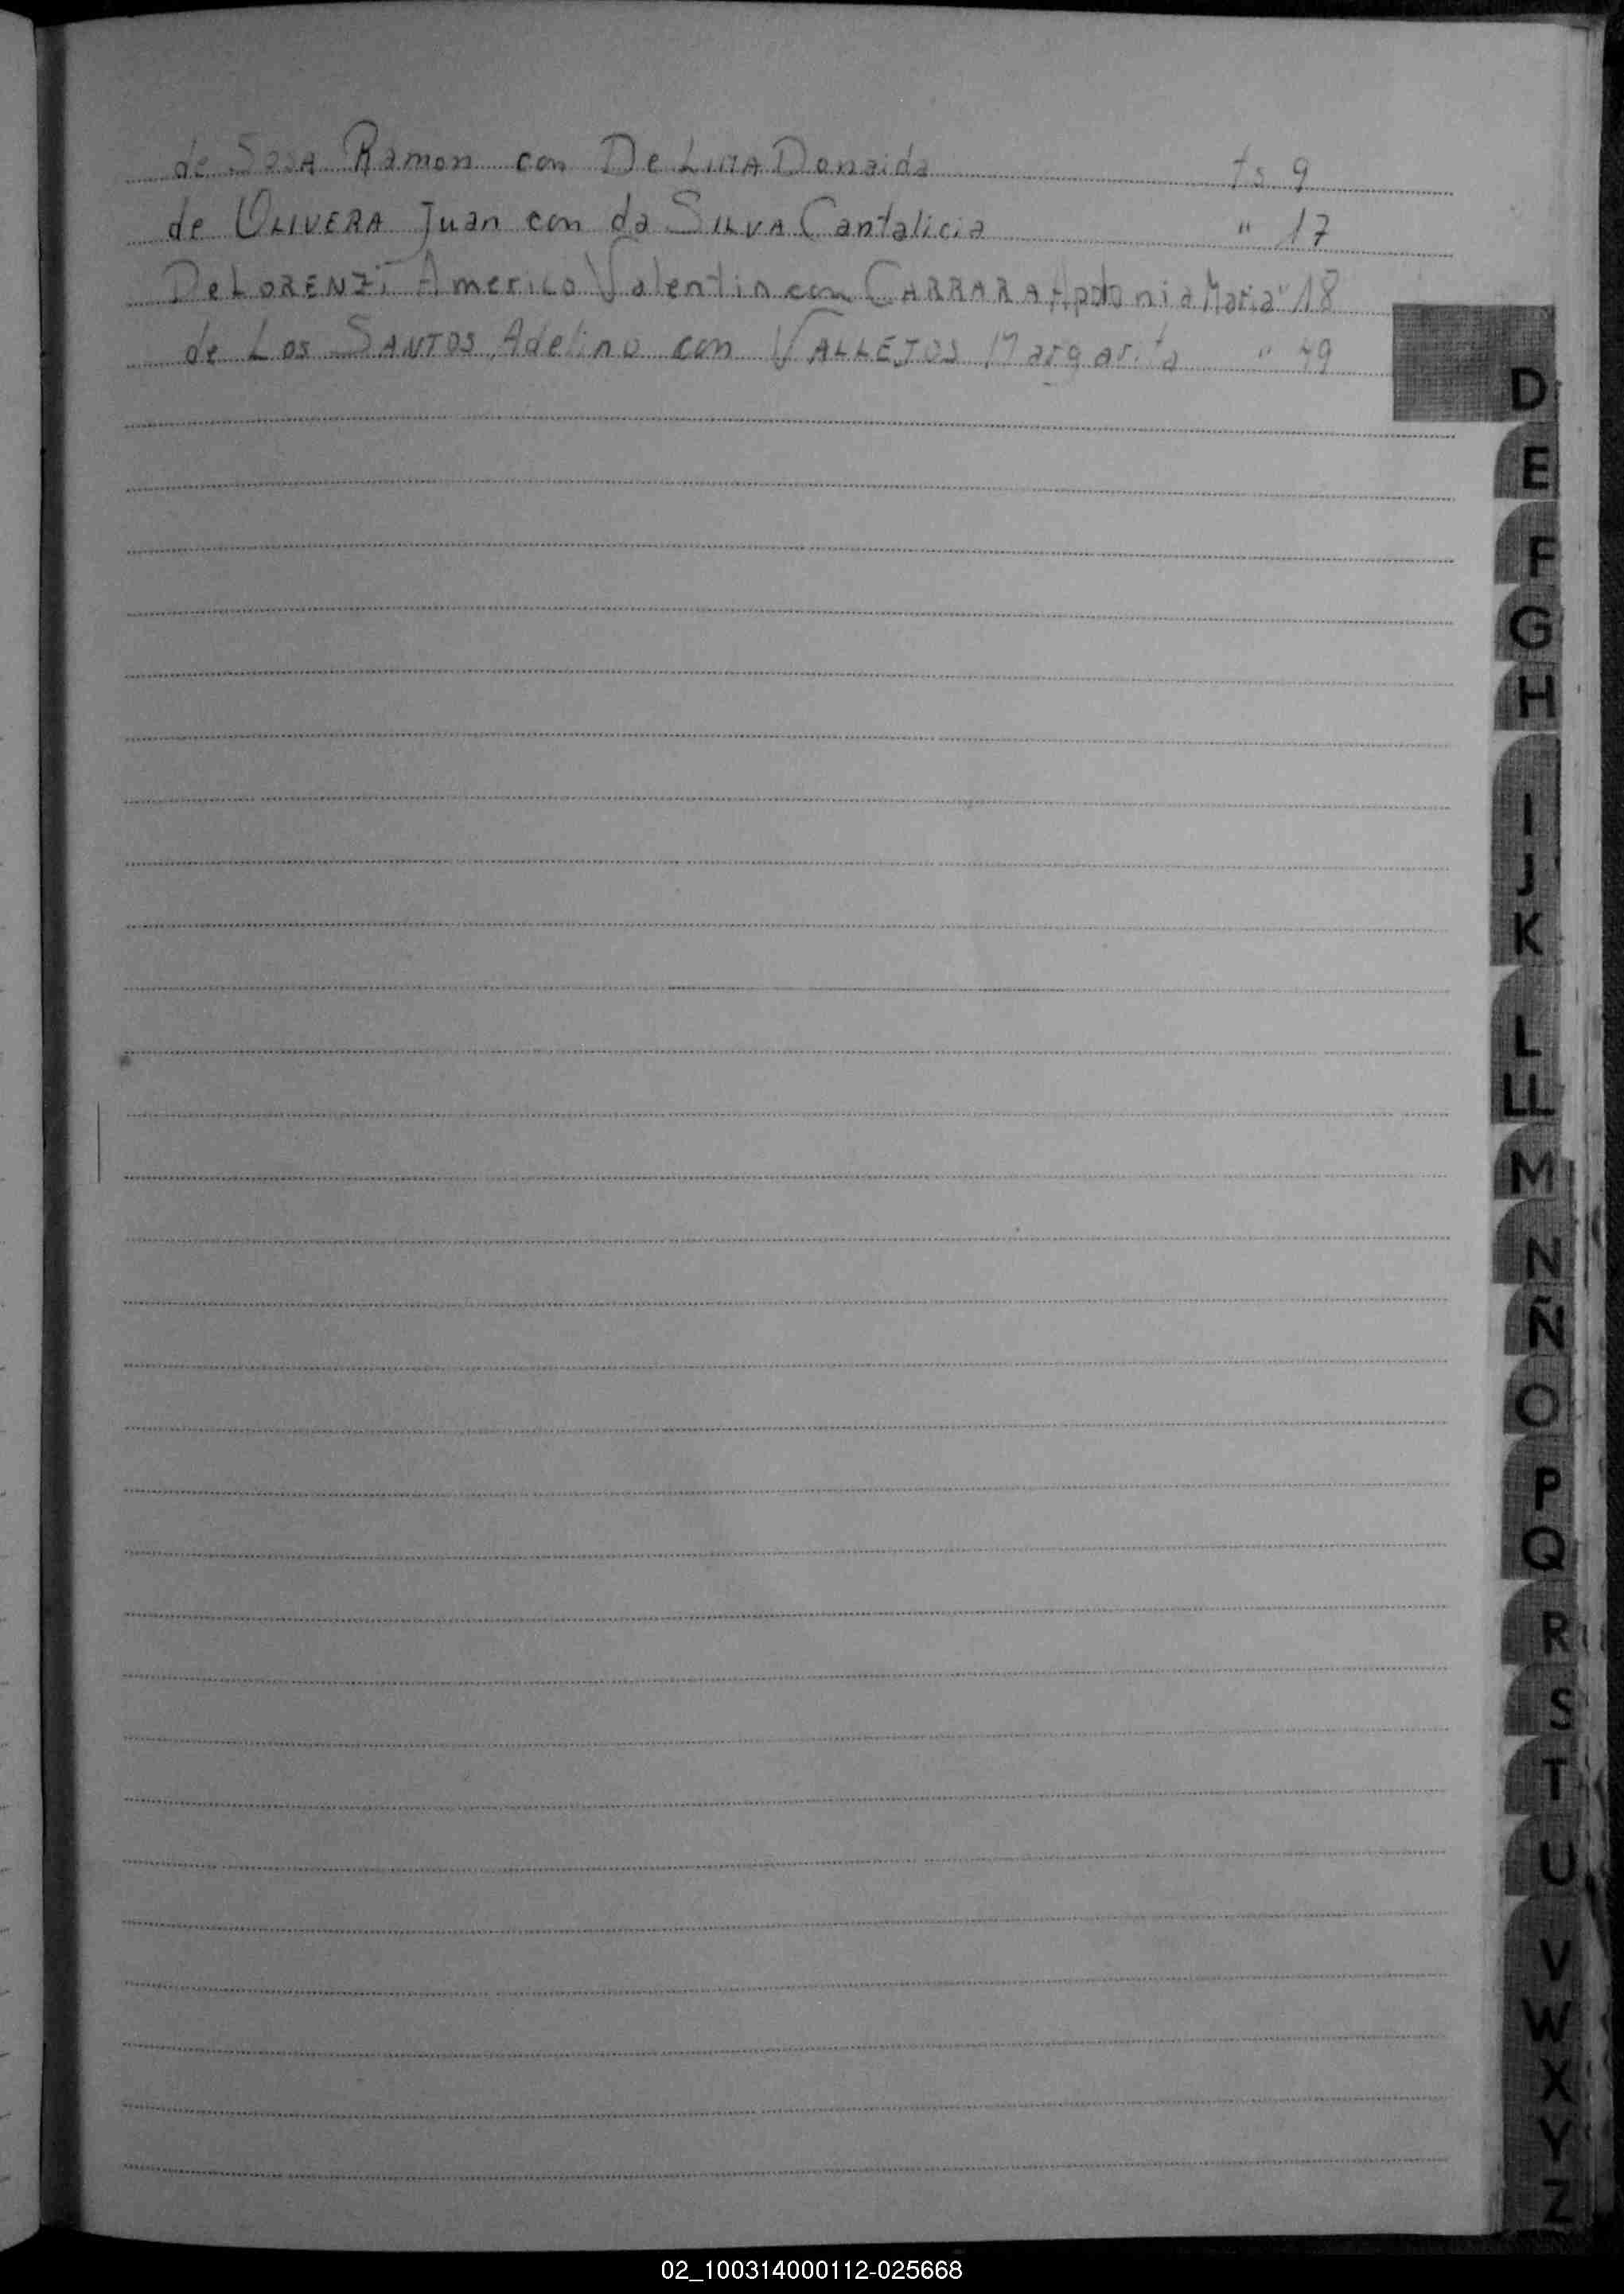 de SosA Ramon con De LiMA Donaida fs 9
de OLIVERA Juan con da SILVA Cantalicia " 17
De LORENZi Americo Valentin con CARRARA Apolonia Maria " 18
de Los SANTOS Adelino con VALLEJOS Margarita " 49
D
E
F
G
H
I
J
K
L
LL
M
N
Ñ
O
P
Q
R
S
T
U
V
W
X
Y
Z
02_100314000112-025668